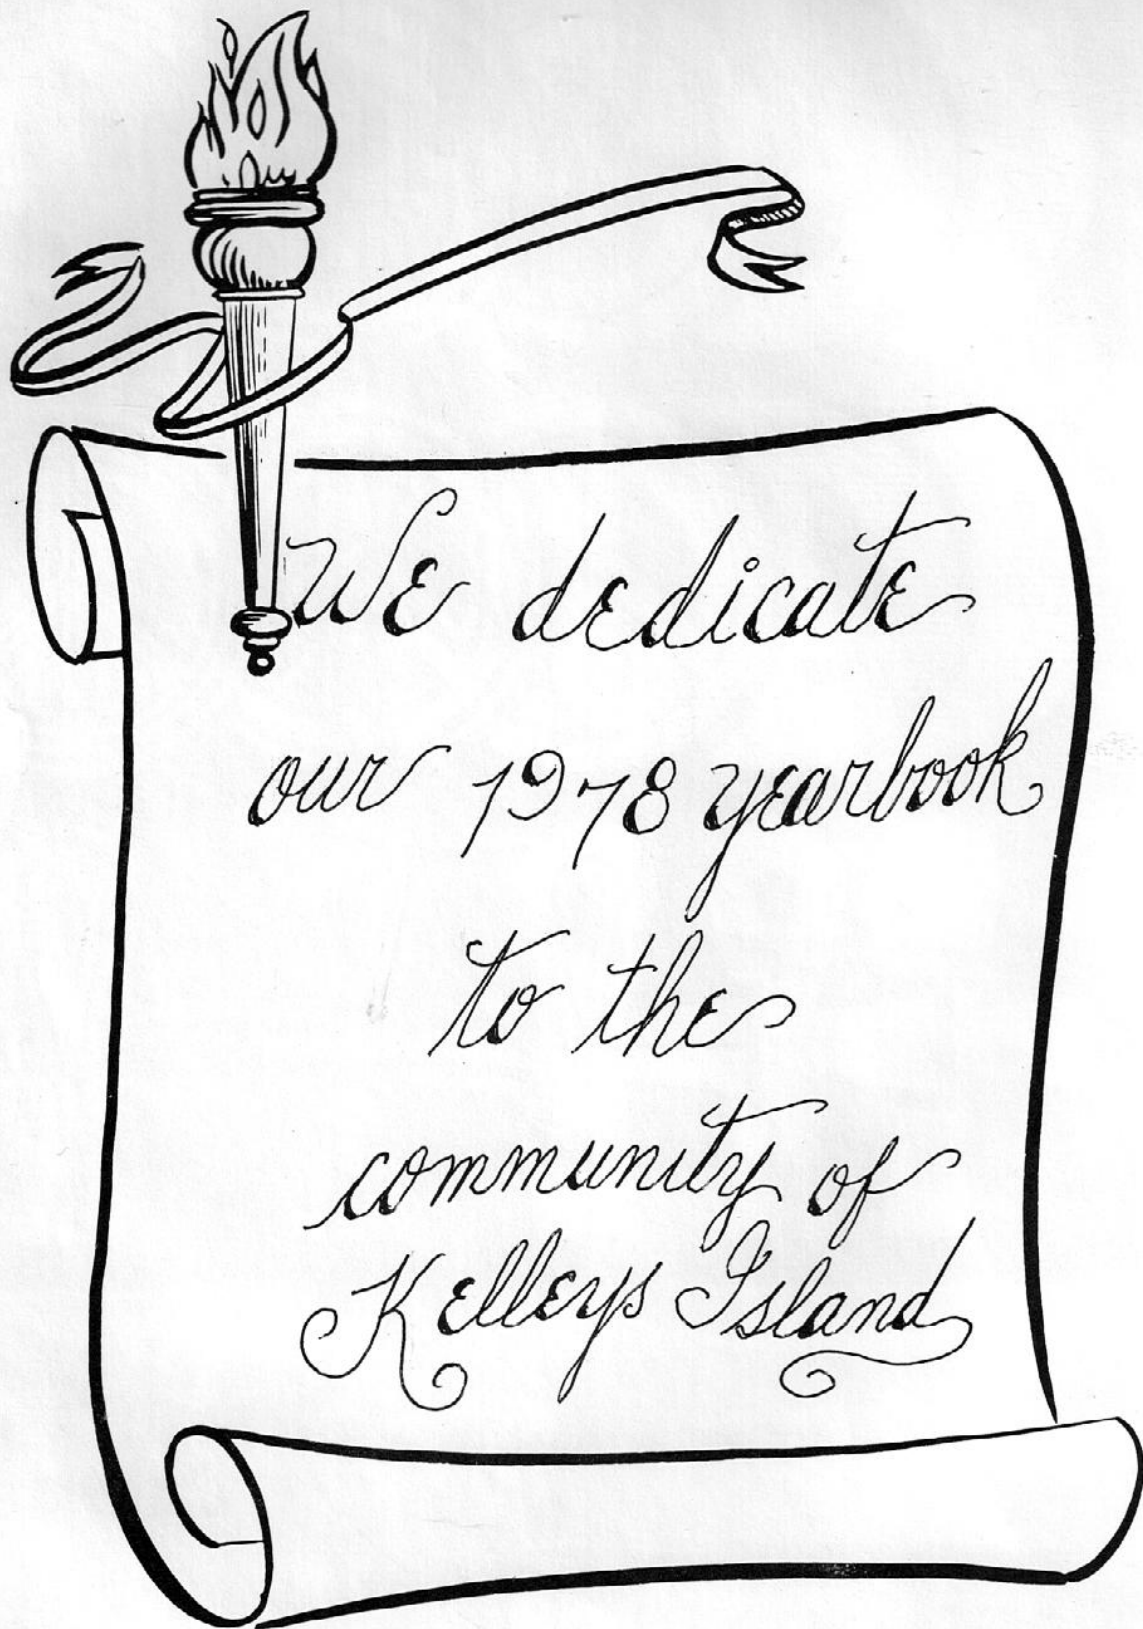 We dedicate
our 1978 yearbook
to the
community of
Kelleys Island